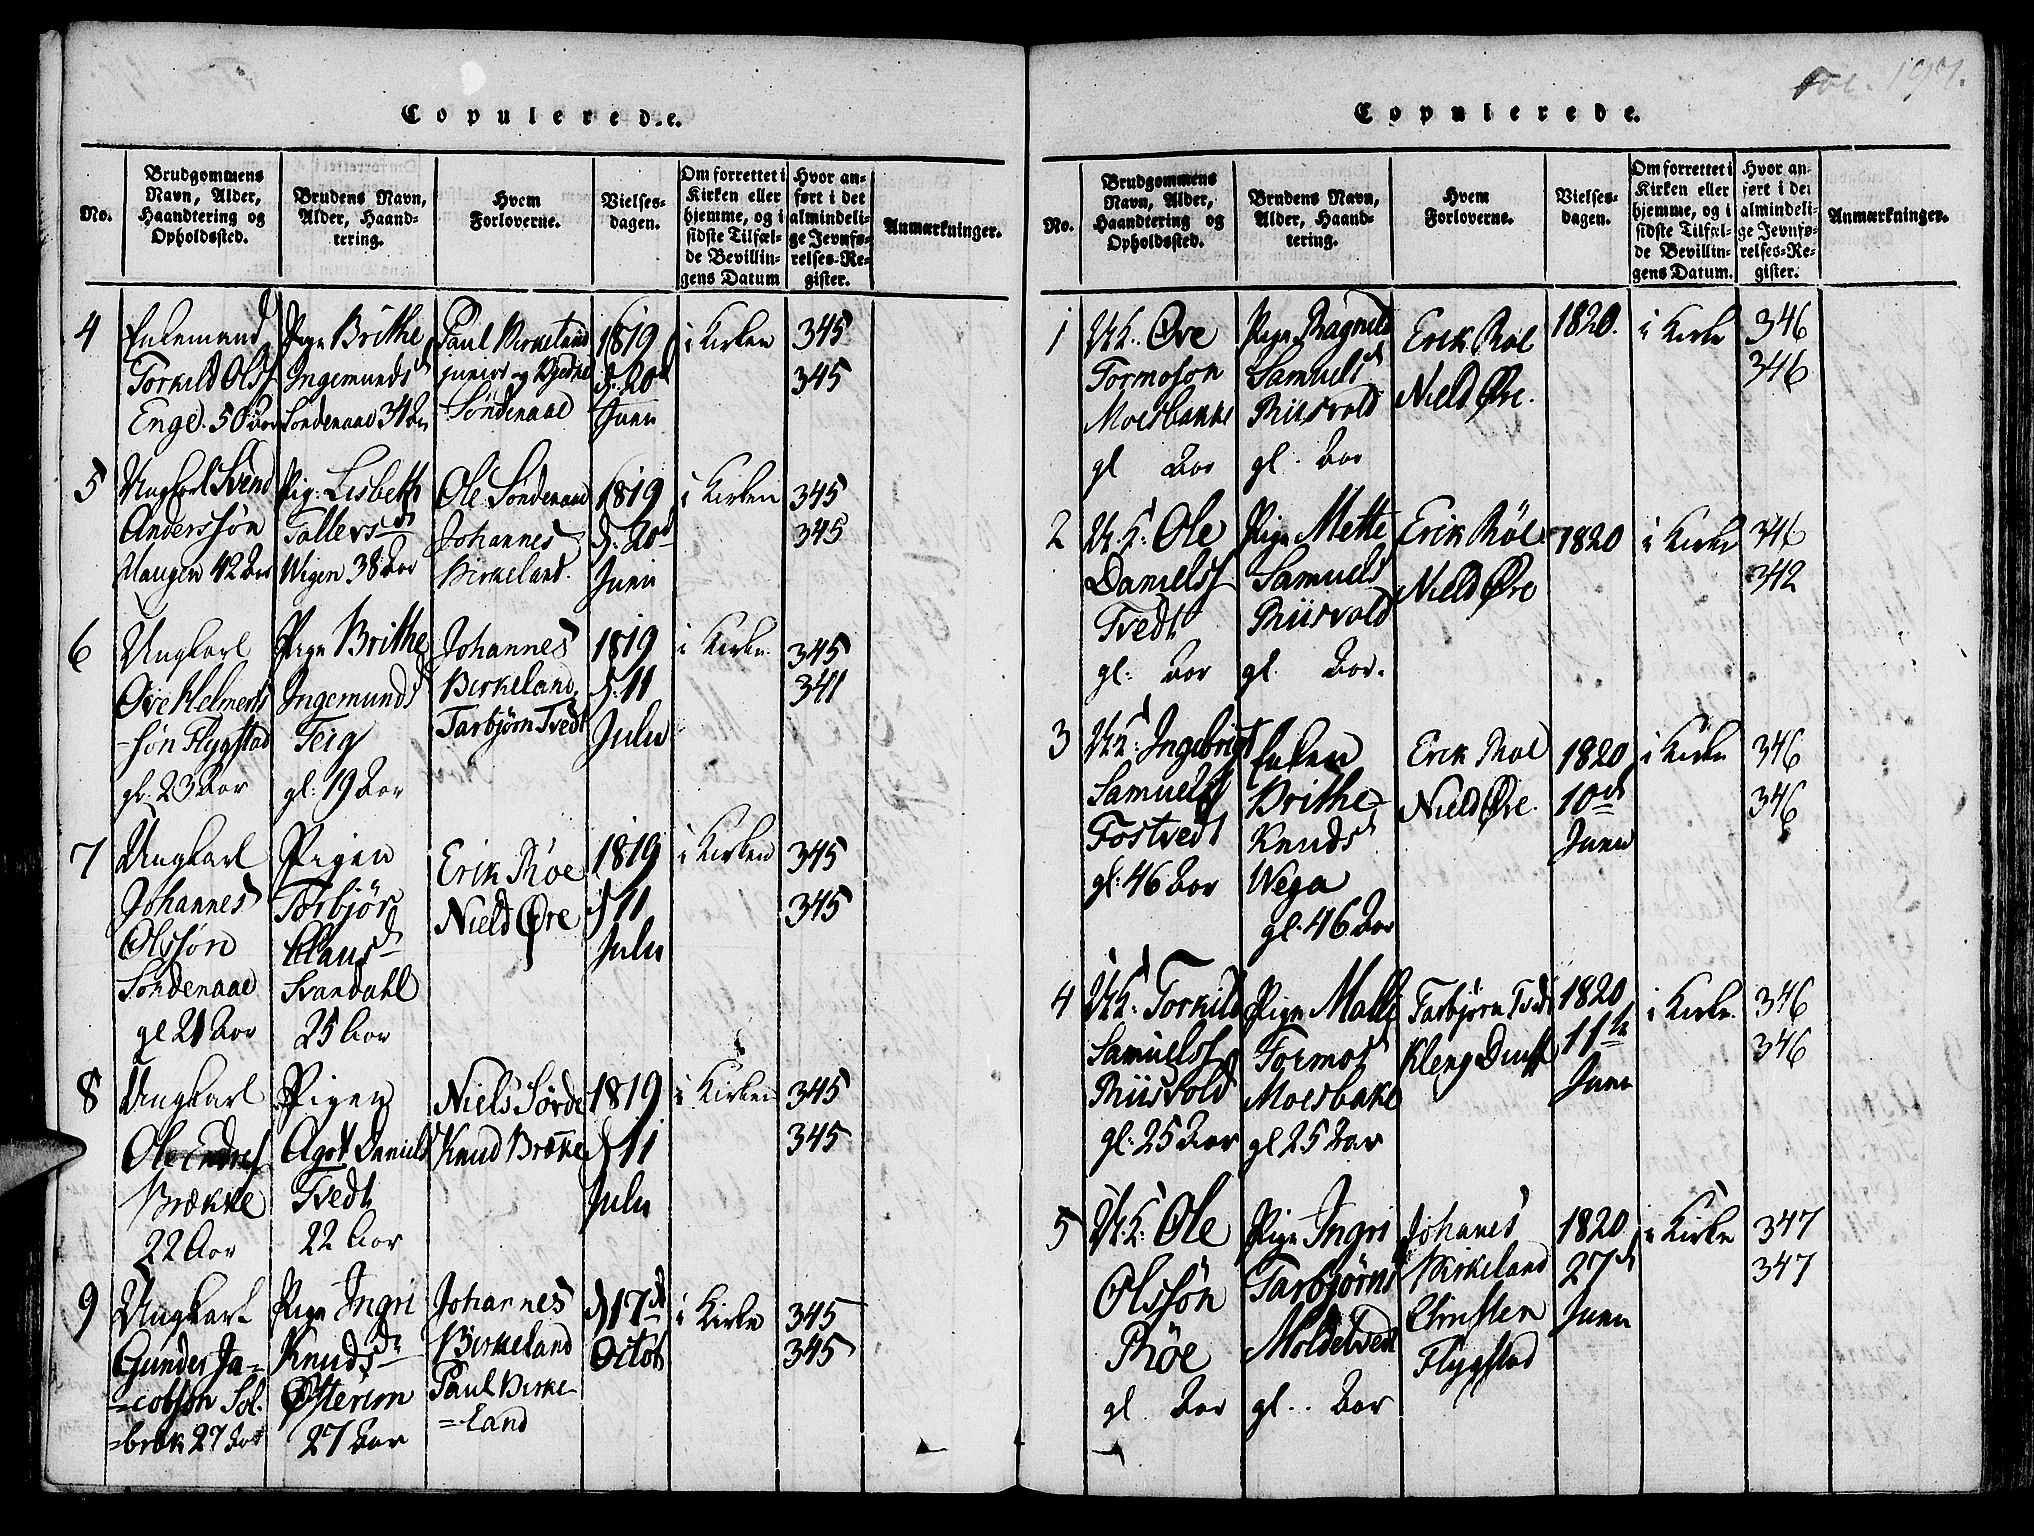 Copulerede.
No.
Brudgommens Navn, Alder, Haandtering og Opholdssted.
Brudens Navn, Alder, Haandtering.
Hvem Forloverne.
Vielses-dagen.
Om forrettet i Kirken eller hjemme, og i sidste Tilfælde Bevillingens Datum
Hvor anført i det almindelige Jevnførelses-Register.
Anmærkninger.
4
Enkemand
Torkild Olss
Enge. 50 Aar
Pige Brithe
Ingemundsd
Sondenaae 34 Aar
Paul Birkeland
junior og
Söndenaae
1819
d: 20d
Juni
i Kirken
345
345
5
Ungkarl Svend
Anderssön
Haugen 42 Aar
Pig: Lisbeth
Tallevsdr
Wigen 38 Aar
Ole Söndenaae
Johannes
Birkeland.
1819
d: 20d
Juni
i Kirken
345
345
6
Ungkarl
Ove Helmers
=søn Flygstad
gl. 23 Aar
Pige Brithe
Ingemundsd
Teig
gl: 19 Aar
Johannes
Birkeland
Tarbjørn Tvedt
1819
d: 11
Julii
i Kirken
345
341
7
Ungkarl
Johannes
Olssøn
Söndenaae
gl 21 Aar
Pigen
Torbjør
Clausd
Svandahl
25 Aar
Erik Röe
Niels Øre
1819
d 11
Julii
i Kirken
345
345
8
Ungkarl
Ole Endres
Brække
22 Aar
Pigen
Agot Daniels
Tvedt
22 Aar
Niels Sørde
Knud Brække
1819
d 11
Julii
i Kirken
345
345
9
Ungkarl
Gunder Ja=
=cobsøn Sol.
=bræk 27 Aar
Pige Ingri
Knudsdr
Østerim
27 Aar
Johannes
Birkeland
Paul Birke
=land
d 17de
Octob
i Kirke
345
345
Fol. 197.
Copulerede.
No.
Brudgommens Navn, Alder, Haandtering og Opholdssted.
Brudens Navn, Alder, Haandtering.
Hvem Forloverne.
Vielses-dagen.
Om forrettet i Kirken eller hjemme, og i sidste Tilfælde Bevillingens Datum.
Hvor anført i det almindelige Jevnførelses-Register.
Anmærkninger.
1
U.K. Øve
Tormoson
Moesbakke
gl Aar
Pige Ragnild
Samuelsd
Riisvold
gl. Aar
Erik Röe
Niels Øre.
1820.
i Kirke
346
346
2
U.K: Ole
Danielss
Tvedt
gl: Aar
Pige Mette
Samuels
Riisvold
gl. Aar.
Erik Röe
Niels Øre
1820
i Kirke
346
342
3
U.K: Ingebrigt
Samuelss
Tostvedt
gl: 46 Aar
Enken
Brithe
Knudsd
Wega
gl. 46 Aar
Erik Röe
Niels Øre.
1820
10d
Junii
i Kirke
346
346
4
U.K: Torkild
Samuelss
Riisvold
gl: 25 Aar
Pige Malli
Tormosd
Moesbake
gl 25 Aar
Tarbjørn Tvedt
Kleng
1820
11te
Junii
i Kirke.
346
346
5
U.K: Ole
Olssön
Röe
gl. Aar
Pige Ingri
Tarbjørns
Moldetvedt
gl.. Aar
Johanes
Birkeland
Christen
Flygstad
1820.
27d
Junii
i Kirke
347
347